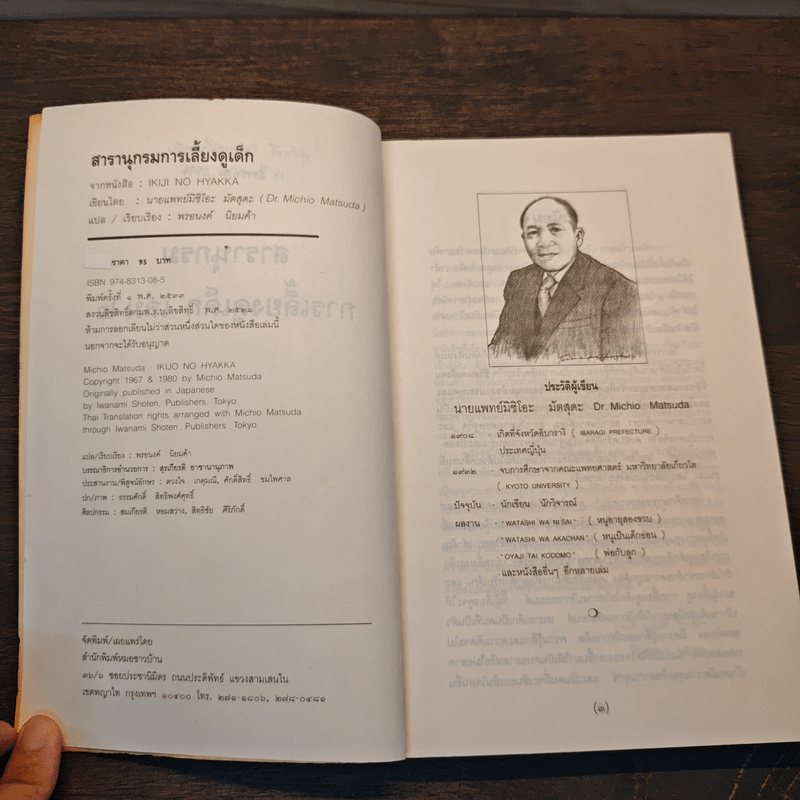 สารานุกรมการเลี้ยงดูเด็ก
จากหนังสือ : IKIJI NO HYAKKA
เขียนโดย : นายแพทย์มิชิโอะ มัตสุดะ ( Dr. Michio Matsuda )
แปล / เรียบเรียง : พรอนงค์ นิยมค้า
ราคา 95 บาท
ISBN 974-8313-08-5
พิมพ์ครั้งที่ ๑ พ.ศ. ๒๕๓๓
สงวนลิขสิทธิ์ตามพ.ร.บ.ลิขสิทธิ์ พ.ศ. ๒๕๒๑
ห้ามการลอกเลียนไม่ว่าส่วนหนึ่งส่วนใดของหนังสือเล่มนี้
นอกจากจะได้รับอนุญาต
Michio Matsuda : IKIJO NO HYAKKA
Copyright 1967 & 1980 by Michio Matsuda
Originally published in Japanese
by Iwanami Shoten, Publishers, Tokyo.
Thai Translation rights arranged with Michio Matsuda
through Iwanami Shoten, Publishers, Tokyo
แปล/เรียบเรียง : พรอนงค์ นิยมค้า
บรรณาธิการอำนวยการ : สุรเกียรติ อาชานานุภาพ
ประสานงาน/พิสูจน์อักษร : ดวงใจ เกตุมณี, ศักดิ์สิทธิ์ ชมไพศาล
ปก/ภาพ : ธรรมศักดิ์ สิทธิพงศ์ศุทธิ์
ศิลปกรรม : สมเกียรติ หอมสว่าง, สิทธิชัย ศิริภักดิ์
จัดพิมพ์/เผยแพร่โดย
สำนักพิมพ์หมอชาวบ้าน
๓๖/๖ ซอยประชานิมิตร ถนนประดิพัทธ์ แขวงสามเสนใน
เขตพญาไท กรุงเทพฯ ๑๐๔๐๐ โทร. ๒๗๑-๑๘๐๖, ๒๗๘-๐๔๘๑
ประวัติผู้เขียน
นายแพทย์มิชิโอะ มัตสุดะ Dr. Michio Matsuda
๑๙๐๘ - เกิดที่จังหวัดอิบารางิ ( IBARAGI PREFECTURE )
ประเทศญี่ปุ่น
๑๙๓๒ - จบการศึกษาจากคณะแพทยศาสตร์ มหาวิทยาลัยเกียวโต
( KYOTO UNIVERSITY )
ปัจจุบัน - นักเขียน นักวิจารณ์
ผลงาน - "WATASHI WA NI SAI" ( หนูอายุสองขวบ )
- "WATASHI WA AKACHAN" ( หนูเป็นเด็กอ่อน )
- "OYAJI TAI KODOMO" ( พ่อกับลูก )
- และหนังสืออื่นๆ อีกหลายเล่ม
(๓)